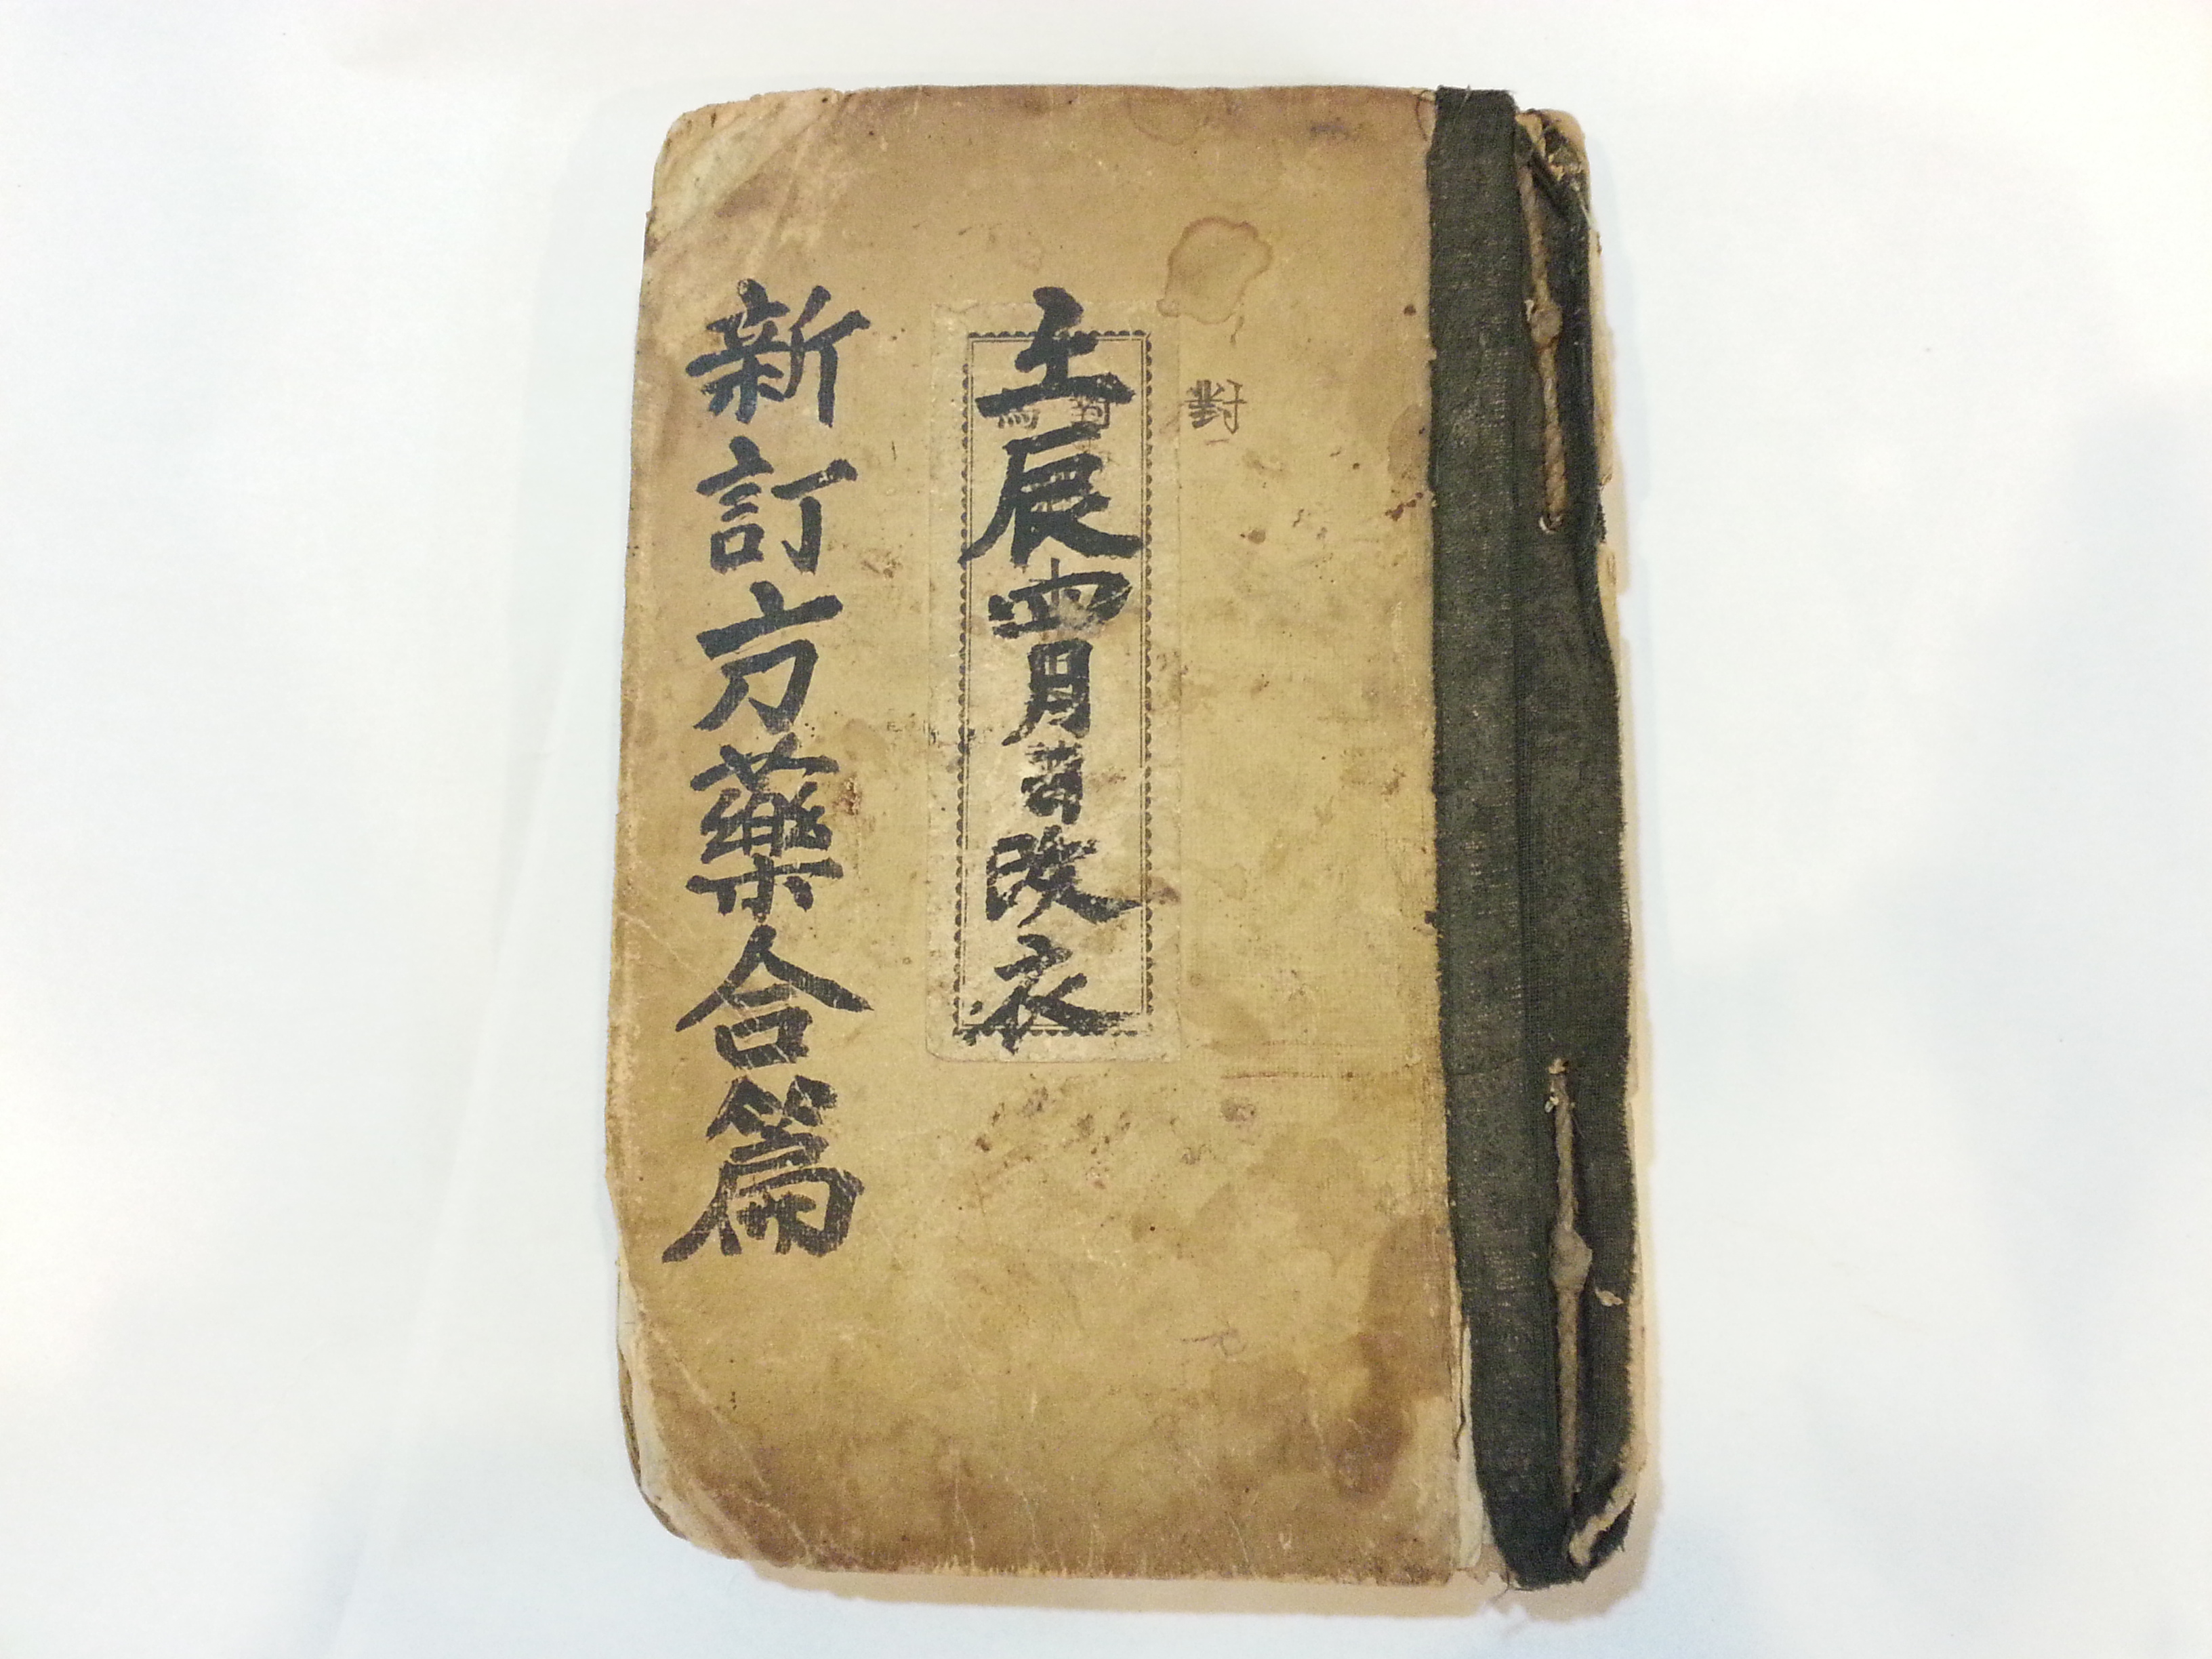 對
壬辰四月吉日改衣
新訂方藥合篇